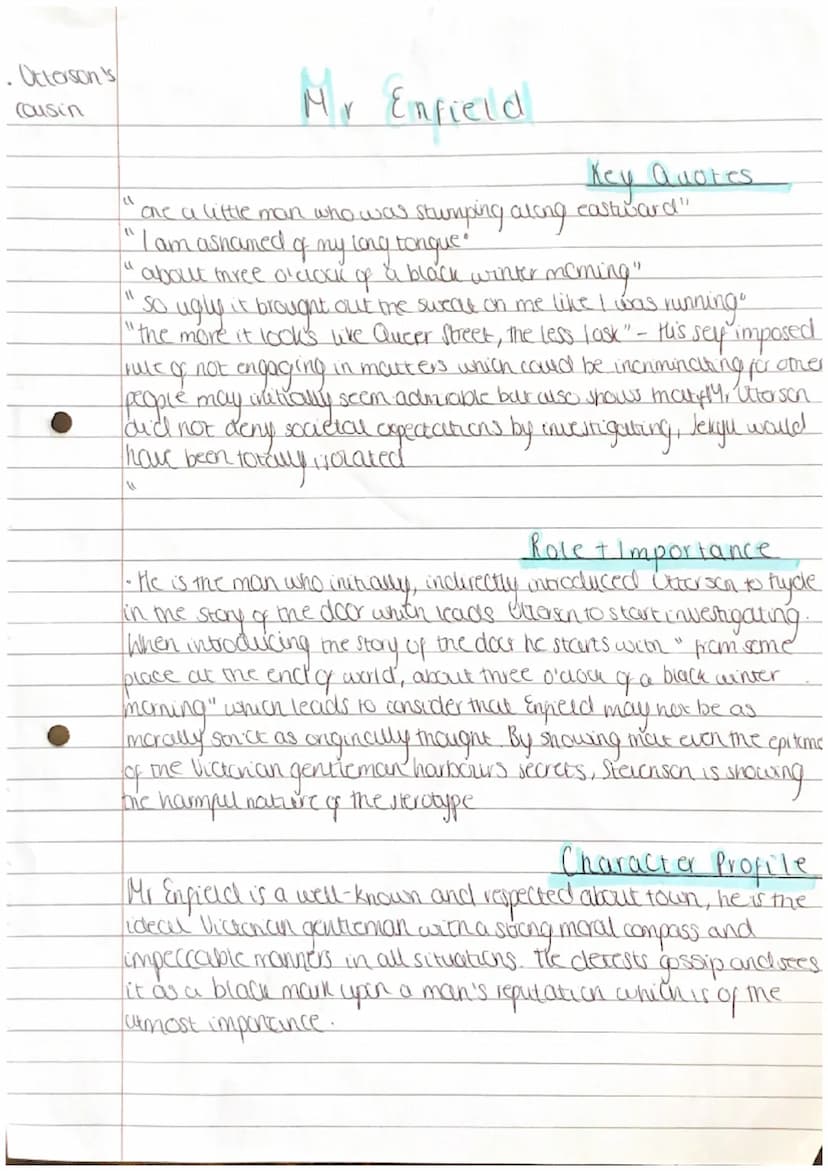 . Utterson's
cousin
Mr Enfield
Key Quotes
" one a little man who was stumping along eastward"
" I am ashamed of my long tongue"
" about three o'clock of a black winter morning"
" so ugly it brought out the sweat on me like I was running"
"the more it looks like Queer Street, the less I ask" - His self imposed
rule of not engaging in matters which could be incriminating for other
people may initially seem admirable but also shows that if Mr Utterson
did not deny societal expectations by investigating, Jekyll would
have been totally isolated
"
Role + Importance
· He is the man who initially, indirectly introduced Utterson to Hyde
in the story of the door which leads Utterson to start investigating.
When introducing the story of the door he starts with " from some
place at the end of world', about three o'clock of a black winter
morning" which leads to consider that Enfield may not be as
morally strict as originally thought. By showing that even the epitome
of the Victorian gentleman harbours secrets, Stevenson is showing
the harmful nature of the sterotype
Character Profile
Mr Enfield is a well-known and respected about town, he is the
ideal Victorian gentleman with a strong moral compass and
impeccable manners in all situations. He detests gossip and sees
it as a black mark upon a man's reputation which is of the
utmost importance.